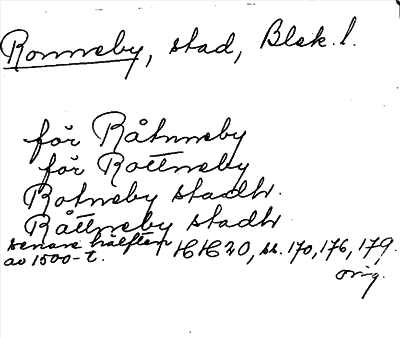 Ronneby, stad, Blek. l.
för Råtnneby
för Rottneby
Rotneby stadh.
Råttneby stadh
senare hälften
av 1500-t. HH 20, ss. 170, 176, 179.
orig.